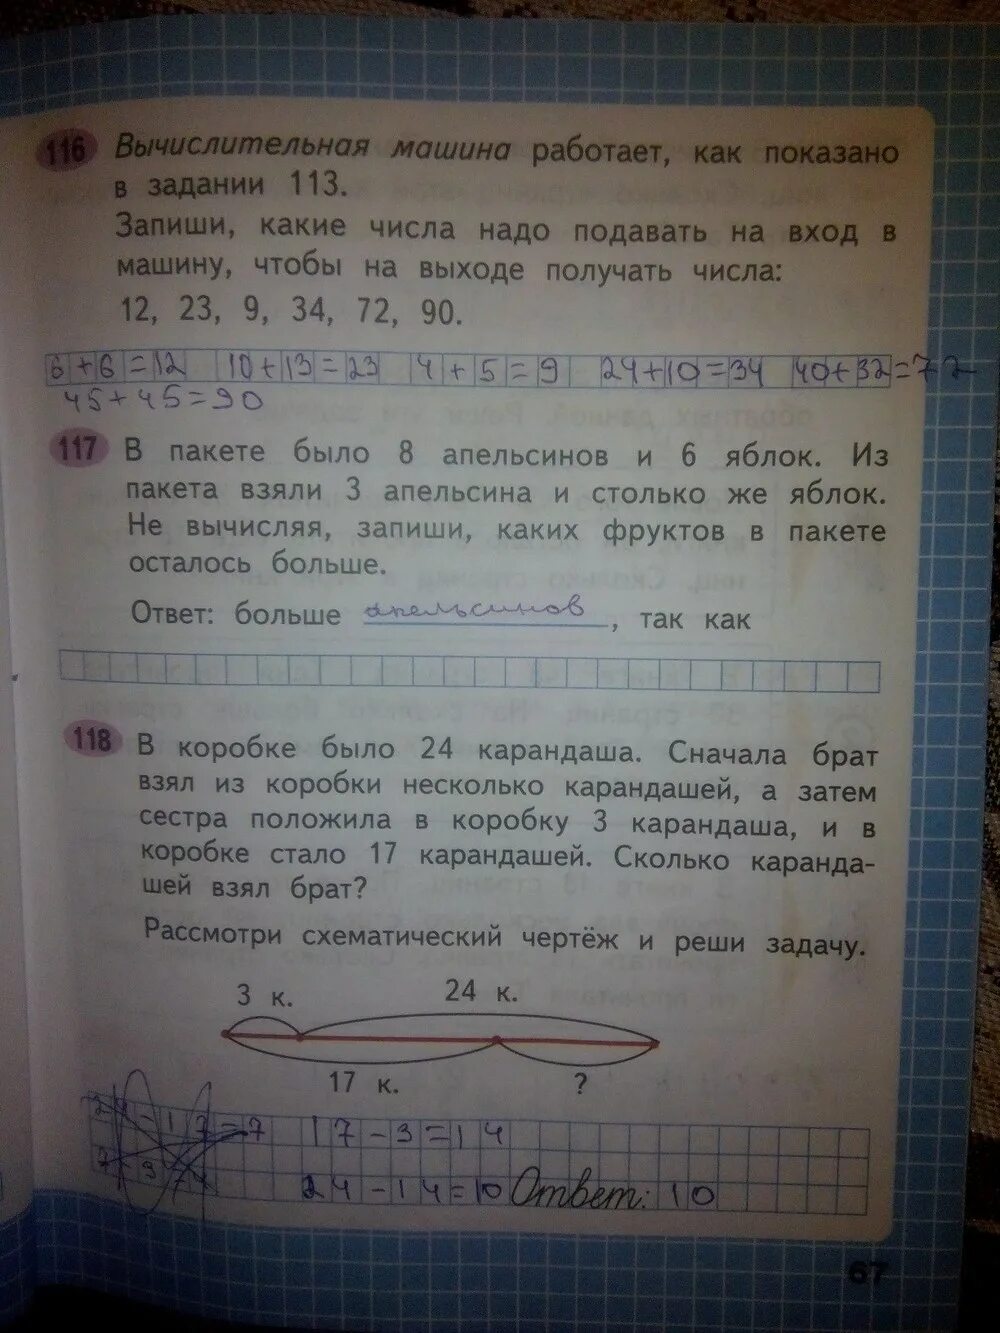 116 Вычислительная машина работает, как показано
в задании 113.
Запиши, какие числа надо подавать на вход в
машину, чтобы на выходе получать числа:
12, 23, 9, 34, 72, 90.
6+6=12 10+13=23 4+5=9 24+10=34 40+32=72
45+45=90
117 В пакете было 8 апельсинов и 6 яблок. Из
пакета взяли 3 апельсина и столько же яблок.
Не вычисляя, запиши, каких фруктов в пакете
осталось больше.
Ответ: больше апельсинов, так как
118 В коробке было 24 карандаша. Сначала брат
взял из коробки несколько карандашей, а затем
сестра положила в коробку 3 карандаша, и в
коробке стало 17 карандашей. Сколько каранда-
шей взял брат?
Рассмотри схематический чертёж и реши задачу.
3 к. 24 к.
17 к. ?
24-17=7 17-3=14
24-14=10 Ответ: 10
67